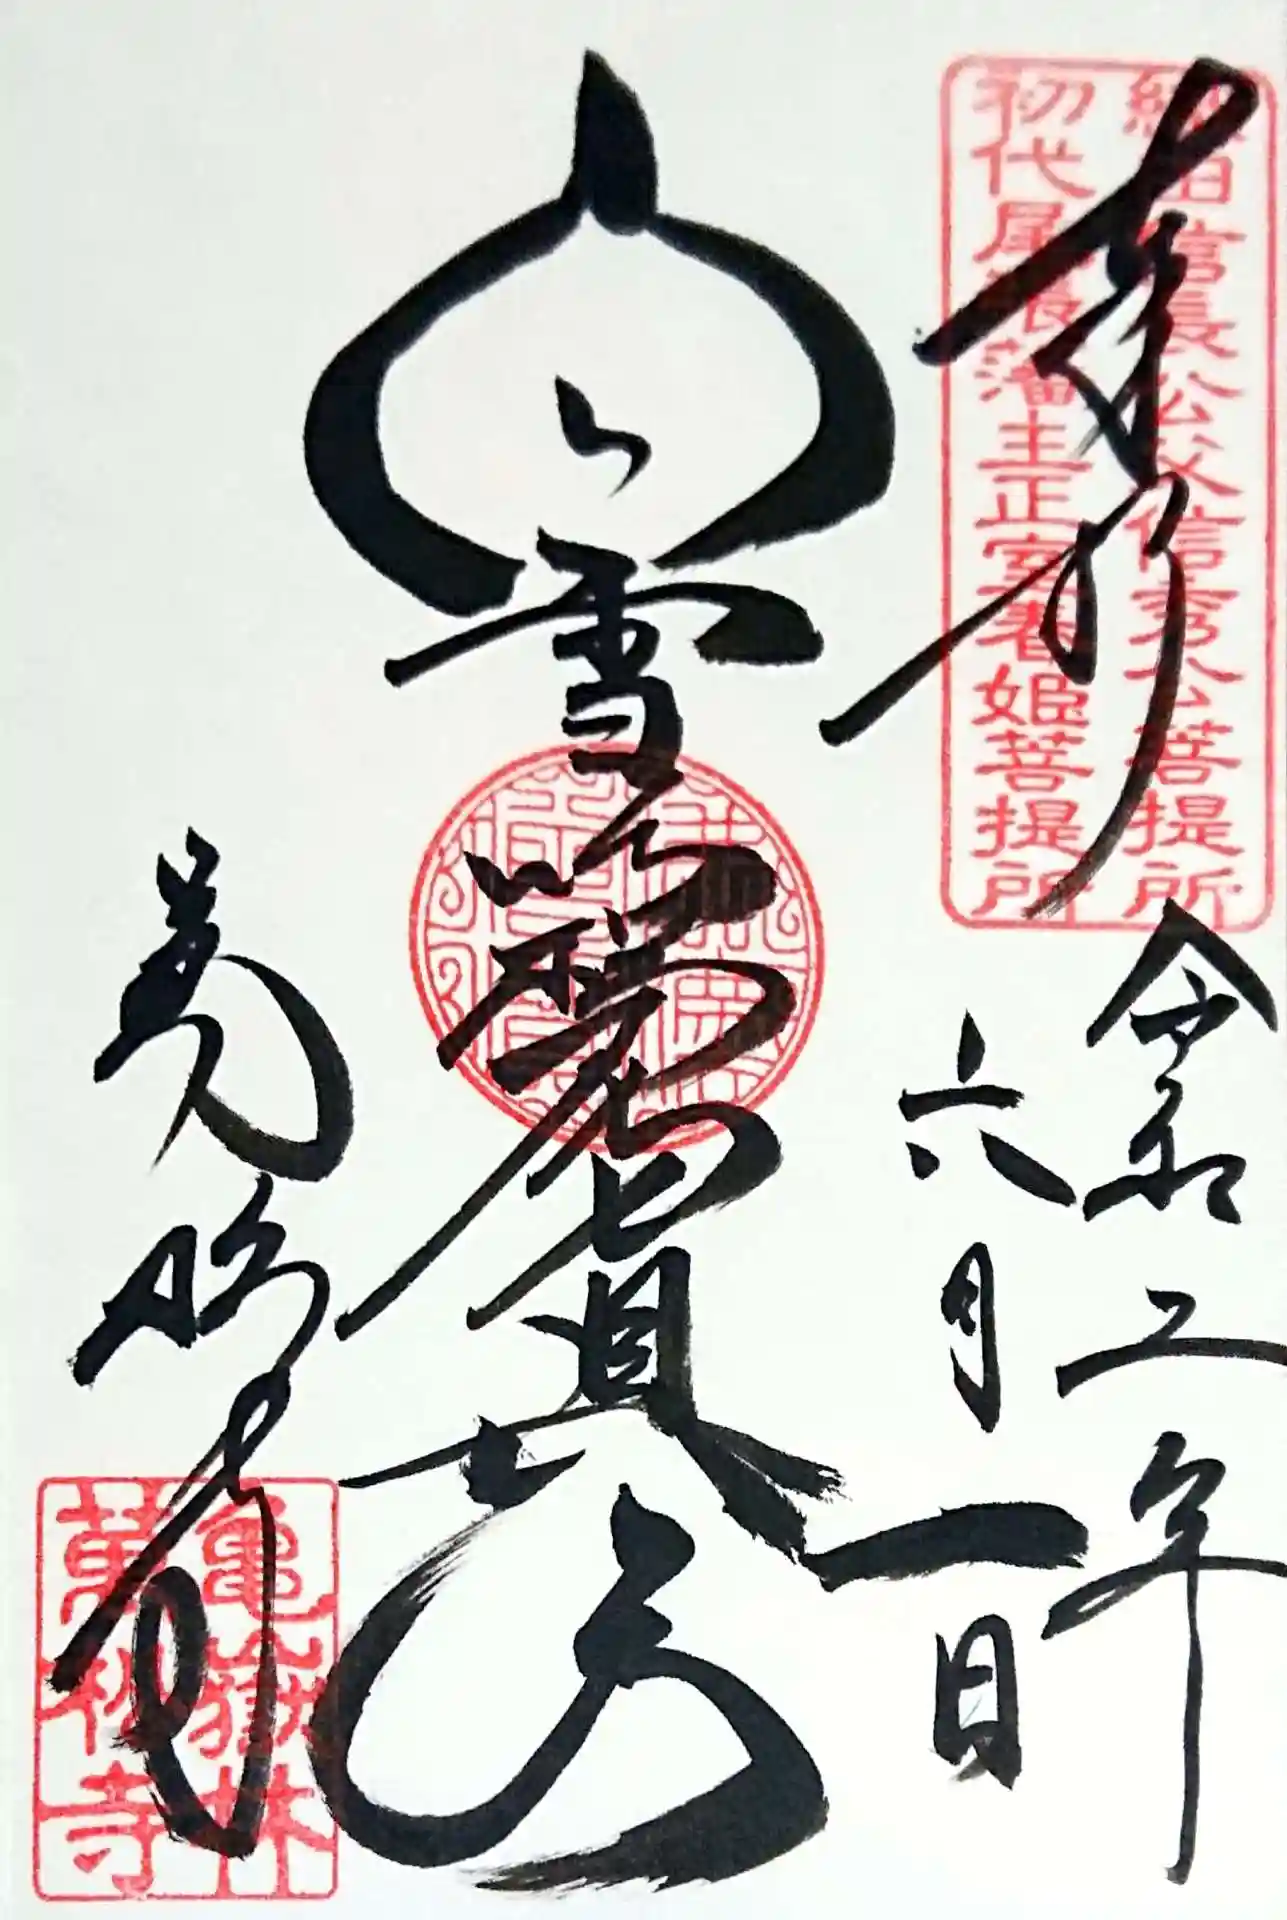 織田信長公父信秀公菩提所
初代尾張藩主正室春姫菩提所
奉拝
令和二年
六月一日
白雪吒枳尼真天
萬松寺
亀嶽林
萬松寺